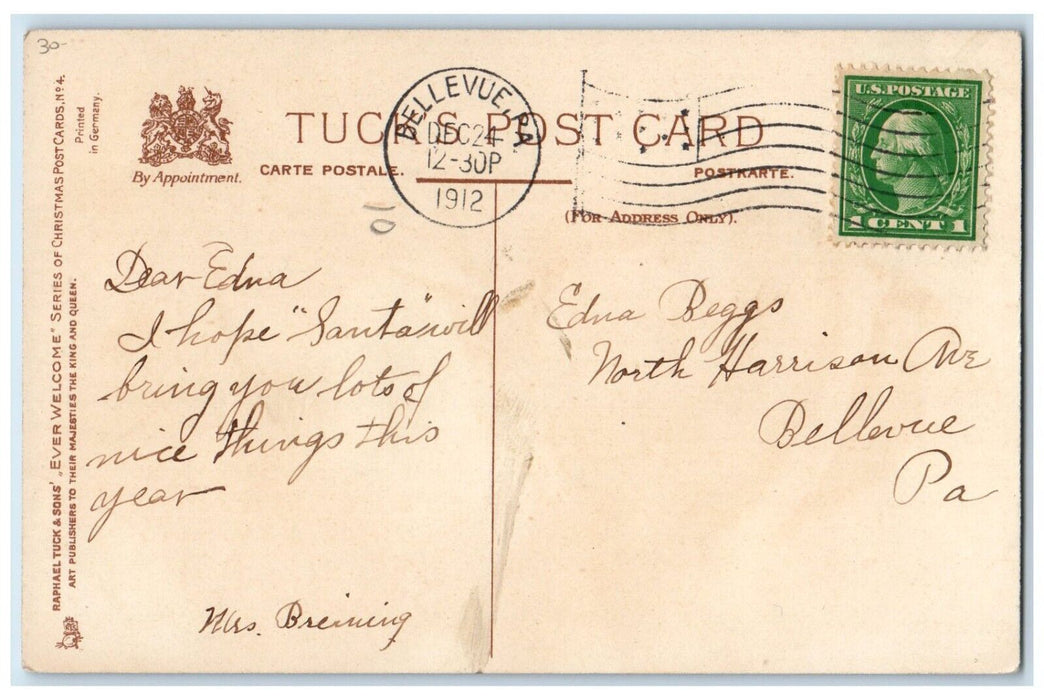 30-
Printed
in Germany.
RAPHAEL TUCK & SONS' „EVER WELCOME" SERIES OF CHRISTMAS POST CARDS, Nº 4.
ART PUBLISHERS TO THEIR MAJESTIES THE KING AND QUEEN.
By Appointment.
TUCK'S POST CARD
CARTE POSTALE.
POSTKARTE.
(FOR ADDRESS ONLY).
BELLEVUE, PA
DEC 24
12-30P
1912
U.S. POSTAGE
1 CENT 1
10
Dear Edna
I hope "Santa" will
bring you lots of
nice things this
year
Mrs. Breining
Edna Beggs
North Harrison Ave
Bellevue
Pa